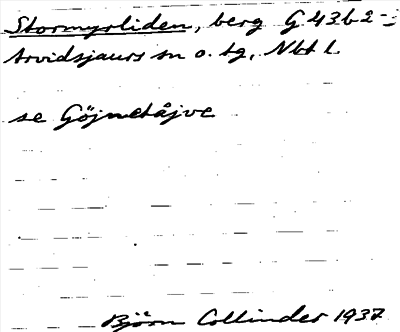 Stormyrliden, berg G 43 b 2-
Arvidsjaurs sn o. tg, Nbt l.
se Göjmetåjve
Björn Collinder 1937